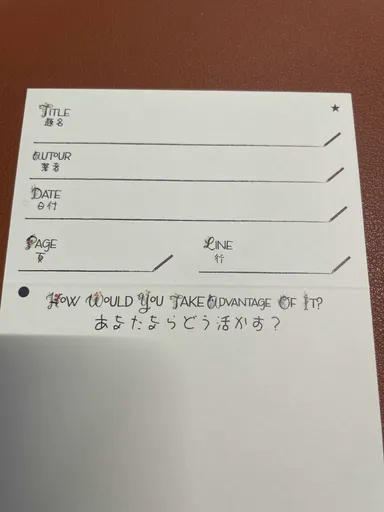 TITLE
題名
AUTOUR
著者
DATE
日付
PAGE
頁
LINE
行
HOW WOULD YOU TAKE ADVANTAGE OF IT?
あなたならどう活かす？